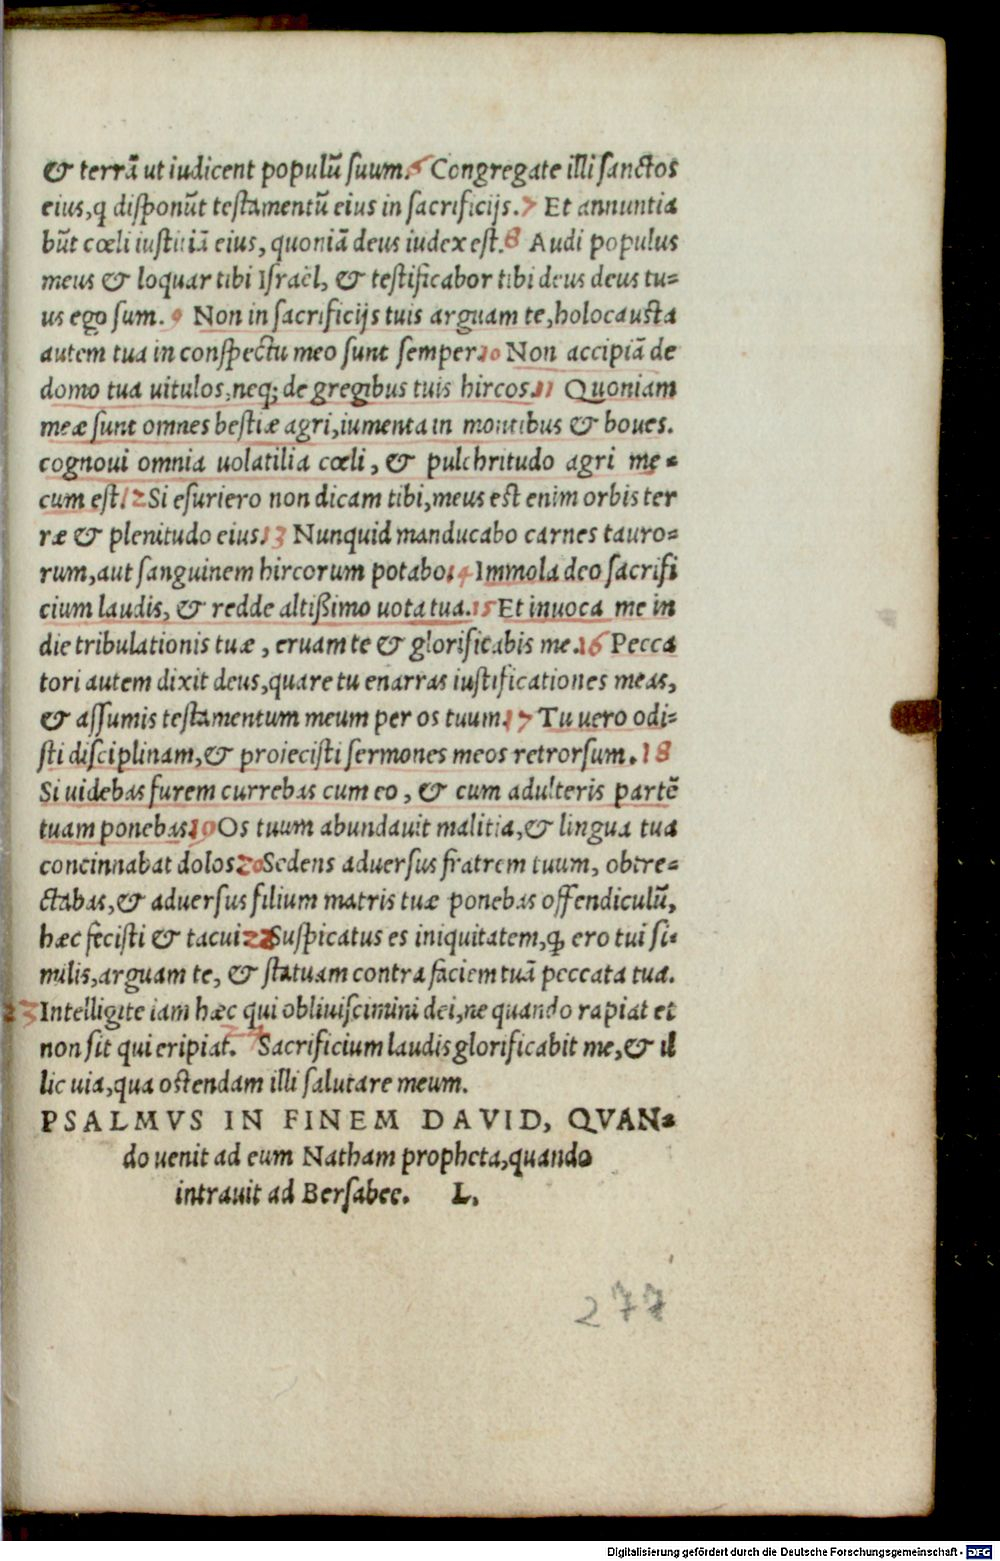 & terrā ut iudicent populū suum. 6 Congregate illi sanctos
eius, q disponūt testamentū eius in sacrificijs. 7 Et annuntia
būt cœli iustitiā eius, quoniā deus iudex est. 8 Audi populus
meus & loquar tibi Israël, & testificabor tibi deus deus tu=
us ego sum. 9 Non in sacrificijs tuis arguam te, holocausta
autem tua in conspectu meo sunt semper. 10 Non accipiā de
domo tua uitulos, neq; de gregibus tuis hircos. 11 Quoniam
meæ sunt omnes bestiæ agri, iumenta in montibus & boues.
cognoui omnia uolatilia cœli, & pulchritudo agri me=
cum est. 12 Si esuriero non dicam tibi, meus est enim orbis ter
ræ & plenitudo eius. 13 Nunquid manducabo carnes tauro=
rum, aut sanguinem hircorum potabo. 14 Immola deo sacrifi
cium laudis, & redde altißimo uota tua. 15 Et inuoca me in
die tribulationis tuæ, eruam te & glorificabis me. 16 Pecca
tori autem dixit deus, quare tu enarras iustificationes meas,
& assumis testamentum meum per os tuum. 17 Tu uero odi=
sti disciplinam, & proiecisti sermones meos retrorsum. 18
Si uidebas furem currebas cum eo, & cum adulteris partē
tuam ponebas. 19 Os tuum abundauit malitia, & lingua tua
concinnabat dolos. 20 Sedens aduersus fratrem tuum, obtre=
ctabas, & aduersus filium matris tuæ ponebas offendiculū,
hæc fecisti & tacui. 22 Suspicatus es iniquitatem, ꝙ ero tui si=
milis, arguam te, & statuam contra faciem tuā peccata tua.
23 Intelligite iam hæc qui obliuiscimini dei, ne quando rapiat et
non sit qui eripiat. 24 Sacrificium laudis glorificabit me, & il
lic uia, qua ostendam illi salutare meum.
PSALMVS IN FINEM DAVID, QVAN=
do uenit ad eum Natham propheta, quando
intrauit ad Bersabee. L.
277
Digitalisierung gefördert durch die Deutsche Forschungsgemeinschaft - DFG